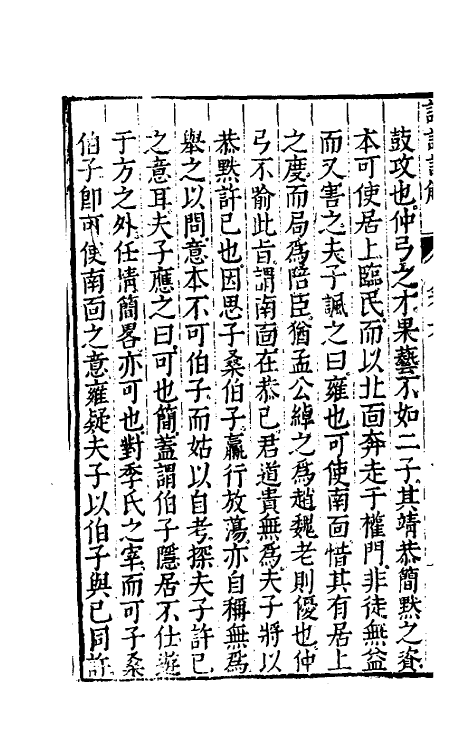 鼓攻也仲弓之才果藝不如二子其靖恭簡默之資
本可使居上臨民而以北面奔走于權門非徒無益
而又害之夫子諷之曰雍也可使南面惜其有居上
之度而局為陪臣猶孟公綽之為趙魏老則優也仲
弓不喻此旨謂南面在恭己君道貴無為夫子將以
恭默許己也因思子桑伯子臝行放蕩亦自稱無為
舉之以問意本不可伯子而姑以自考探夫子許己
之意耳夫子應之曰可也簡蓋謂伯子隱居不仕遊
于方之外任情簡畧亦可也對季氏之宰而可子桑
伯子即可使南面之意雍疑夫子以伯子與己同許